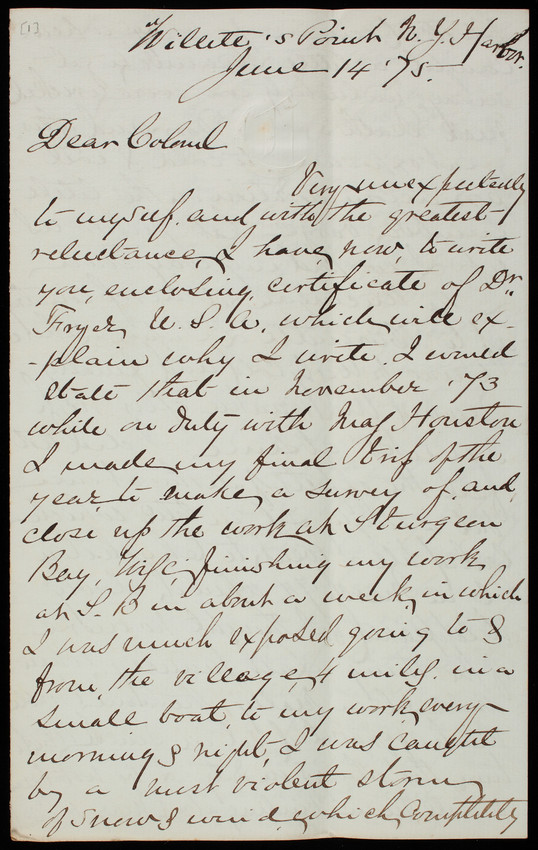 [1]
Willett's Point N. Y. Harbor.
June 14 '75.
Dear Colonel
Very unexpectedly
to myself. and with the greatest
reluctance, I have, now, to write
you, enclosing, certificate of Dr.
Fryer, U. S. A., which will ex-
-plain why I write. I would
state that in November '73
while on duty with Maj Houston
I made my final trip of the
year, to make, a survey of, and,
close up the work at Sturgeon
Bay, Wisc; finishing my work,
at S. B in about a week, in which
I was much exposed going to &
from, the village, 4 miles. in a
small boat, to my work, every
morning & night, I was caught
by a most violent storm
of snow & wind, which completely